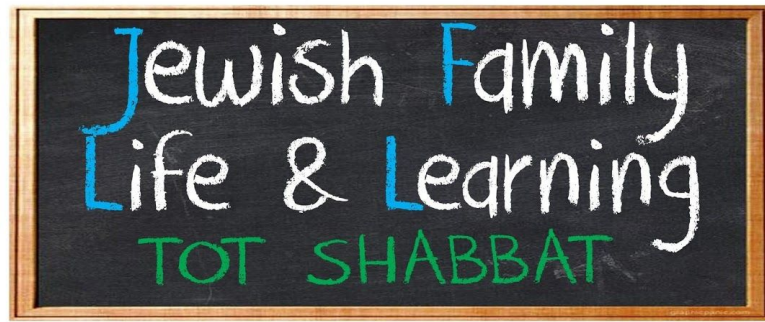 Jewish Family
Life & Learning
TOT SHABBAT